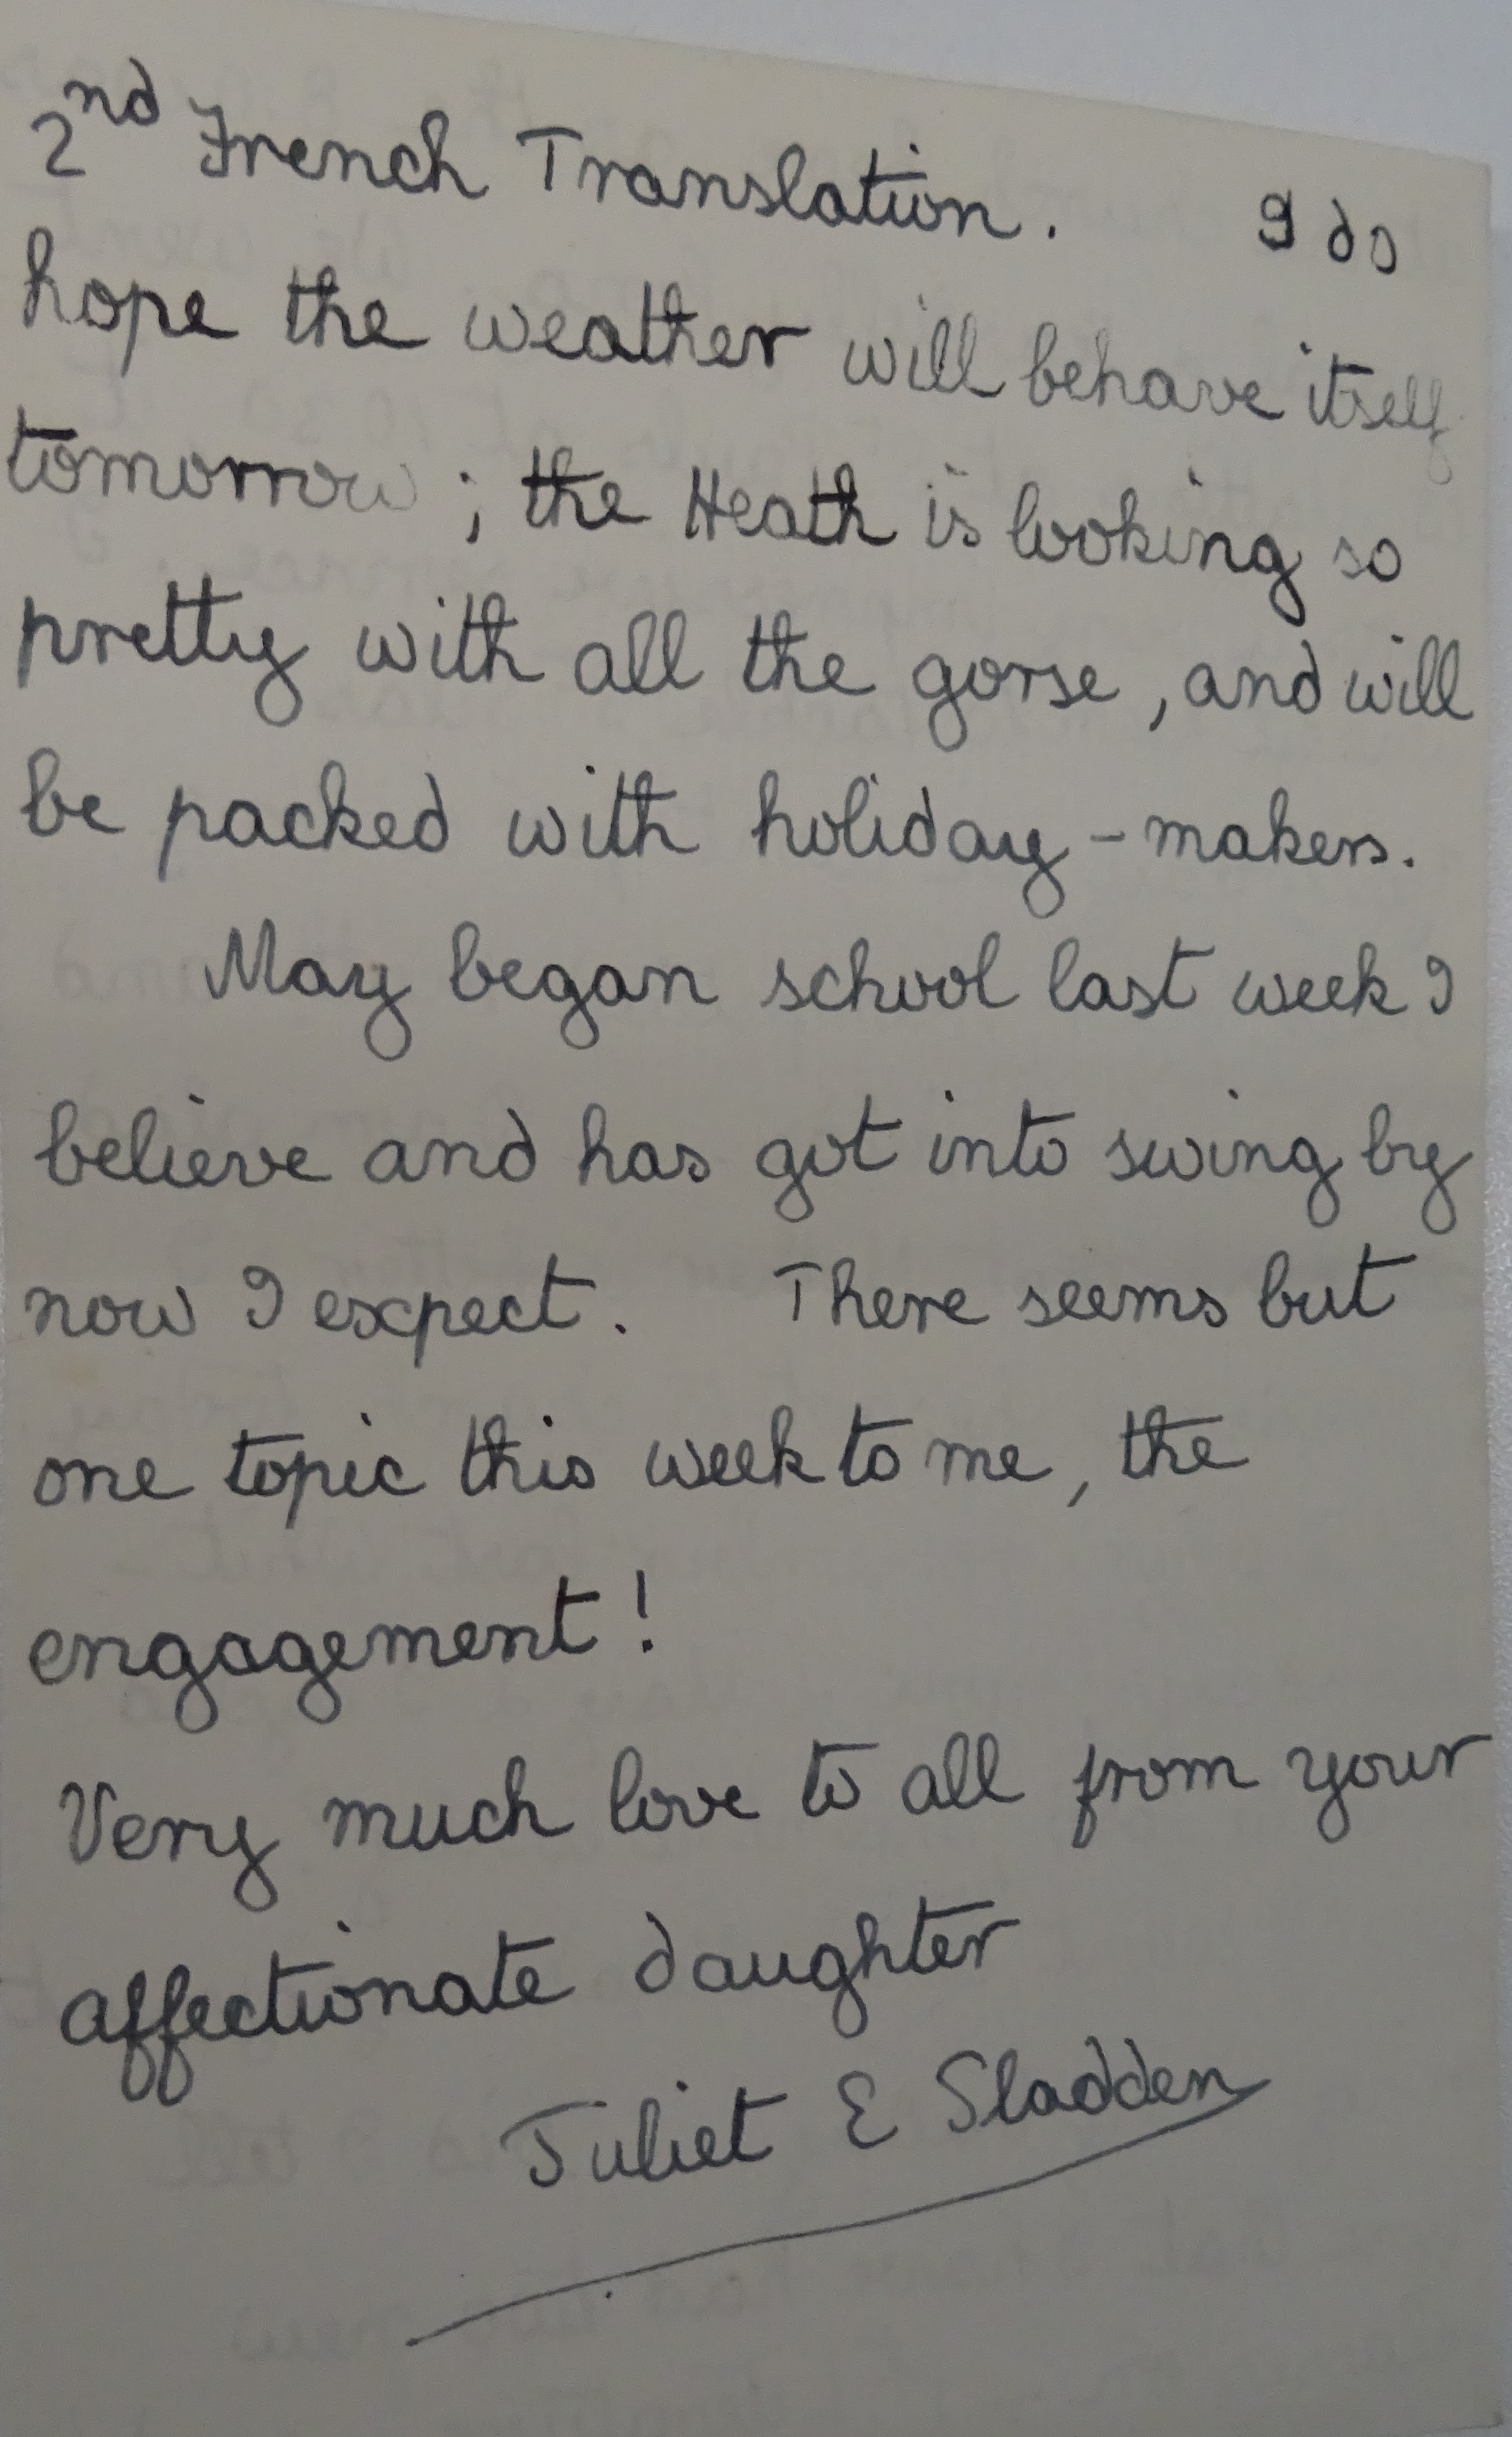 2nd French Translation. I do
hope the weather will behave itself
tomorrow; the Heath is looking so
pretty with all the gorse, and will
be packed with holiday-makers.
May began school last week I
believe and has got into swing by
now I expect. There seems but
one topic this week to me, the
engagement!
Very much love to all from your
affectionate daughter
Juliet E Sladden